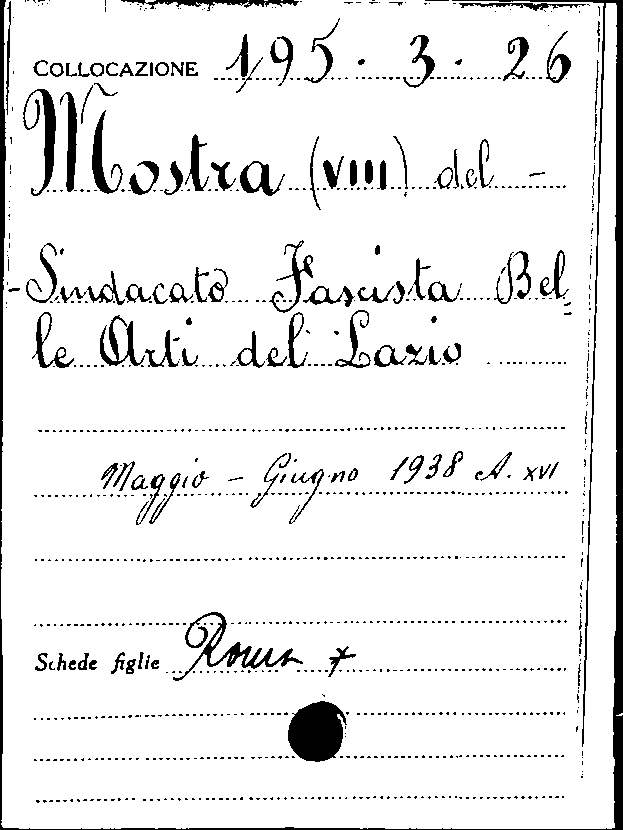 COLLOCAZIONE 195.3.26
Mostra (VIII) del -
- Sindacato Fascista Bel=
le Arti del Lazio
Maggio - Giugno 1938 A. XVI
Schede figlie Roma +